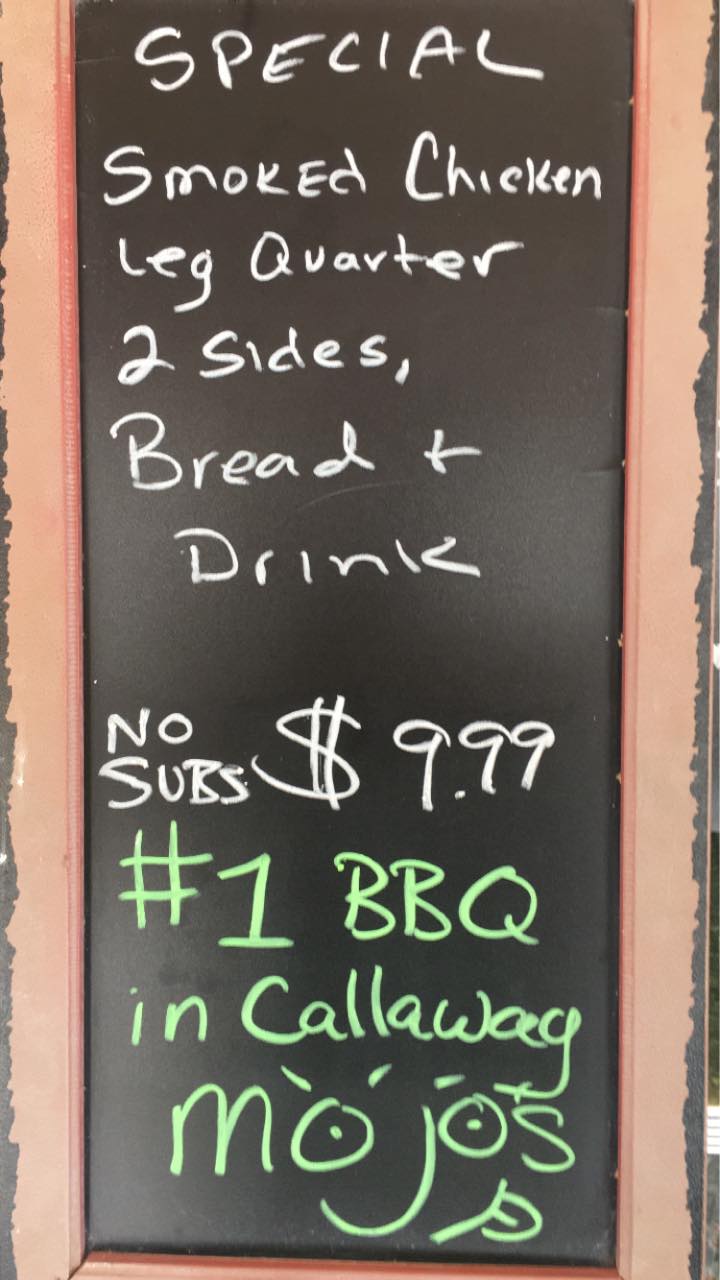 SPECIAL
SMOKEd Chicken
Leg Quarter
2 Sides,
Bread +
Drink
NO
SUBS $ 9.99
#1 BBQ
in Callaway
mojo's